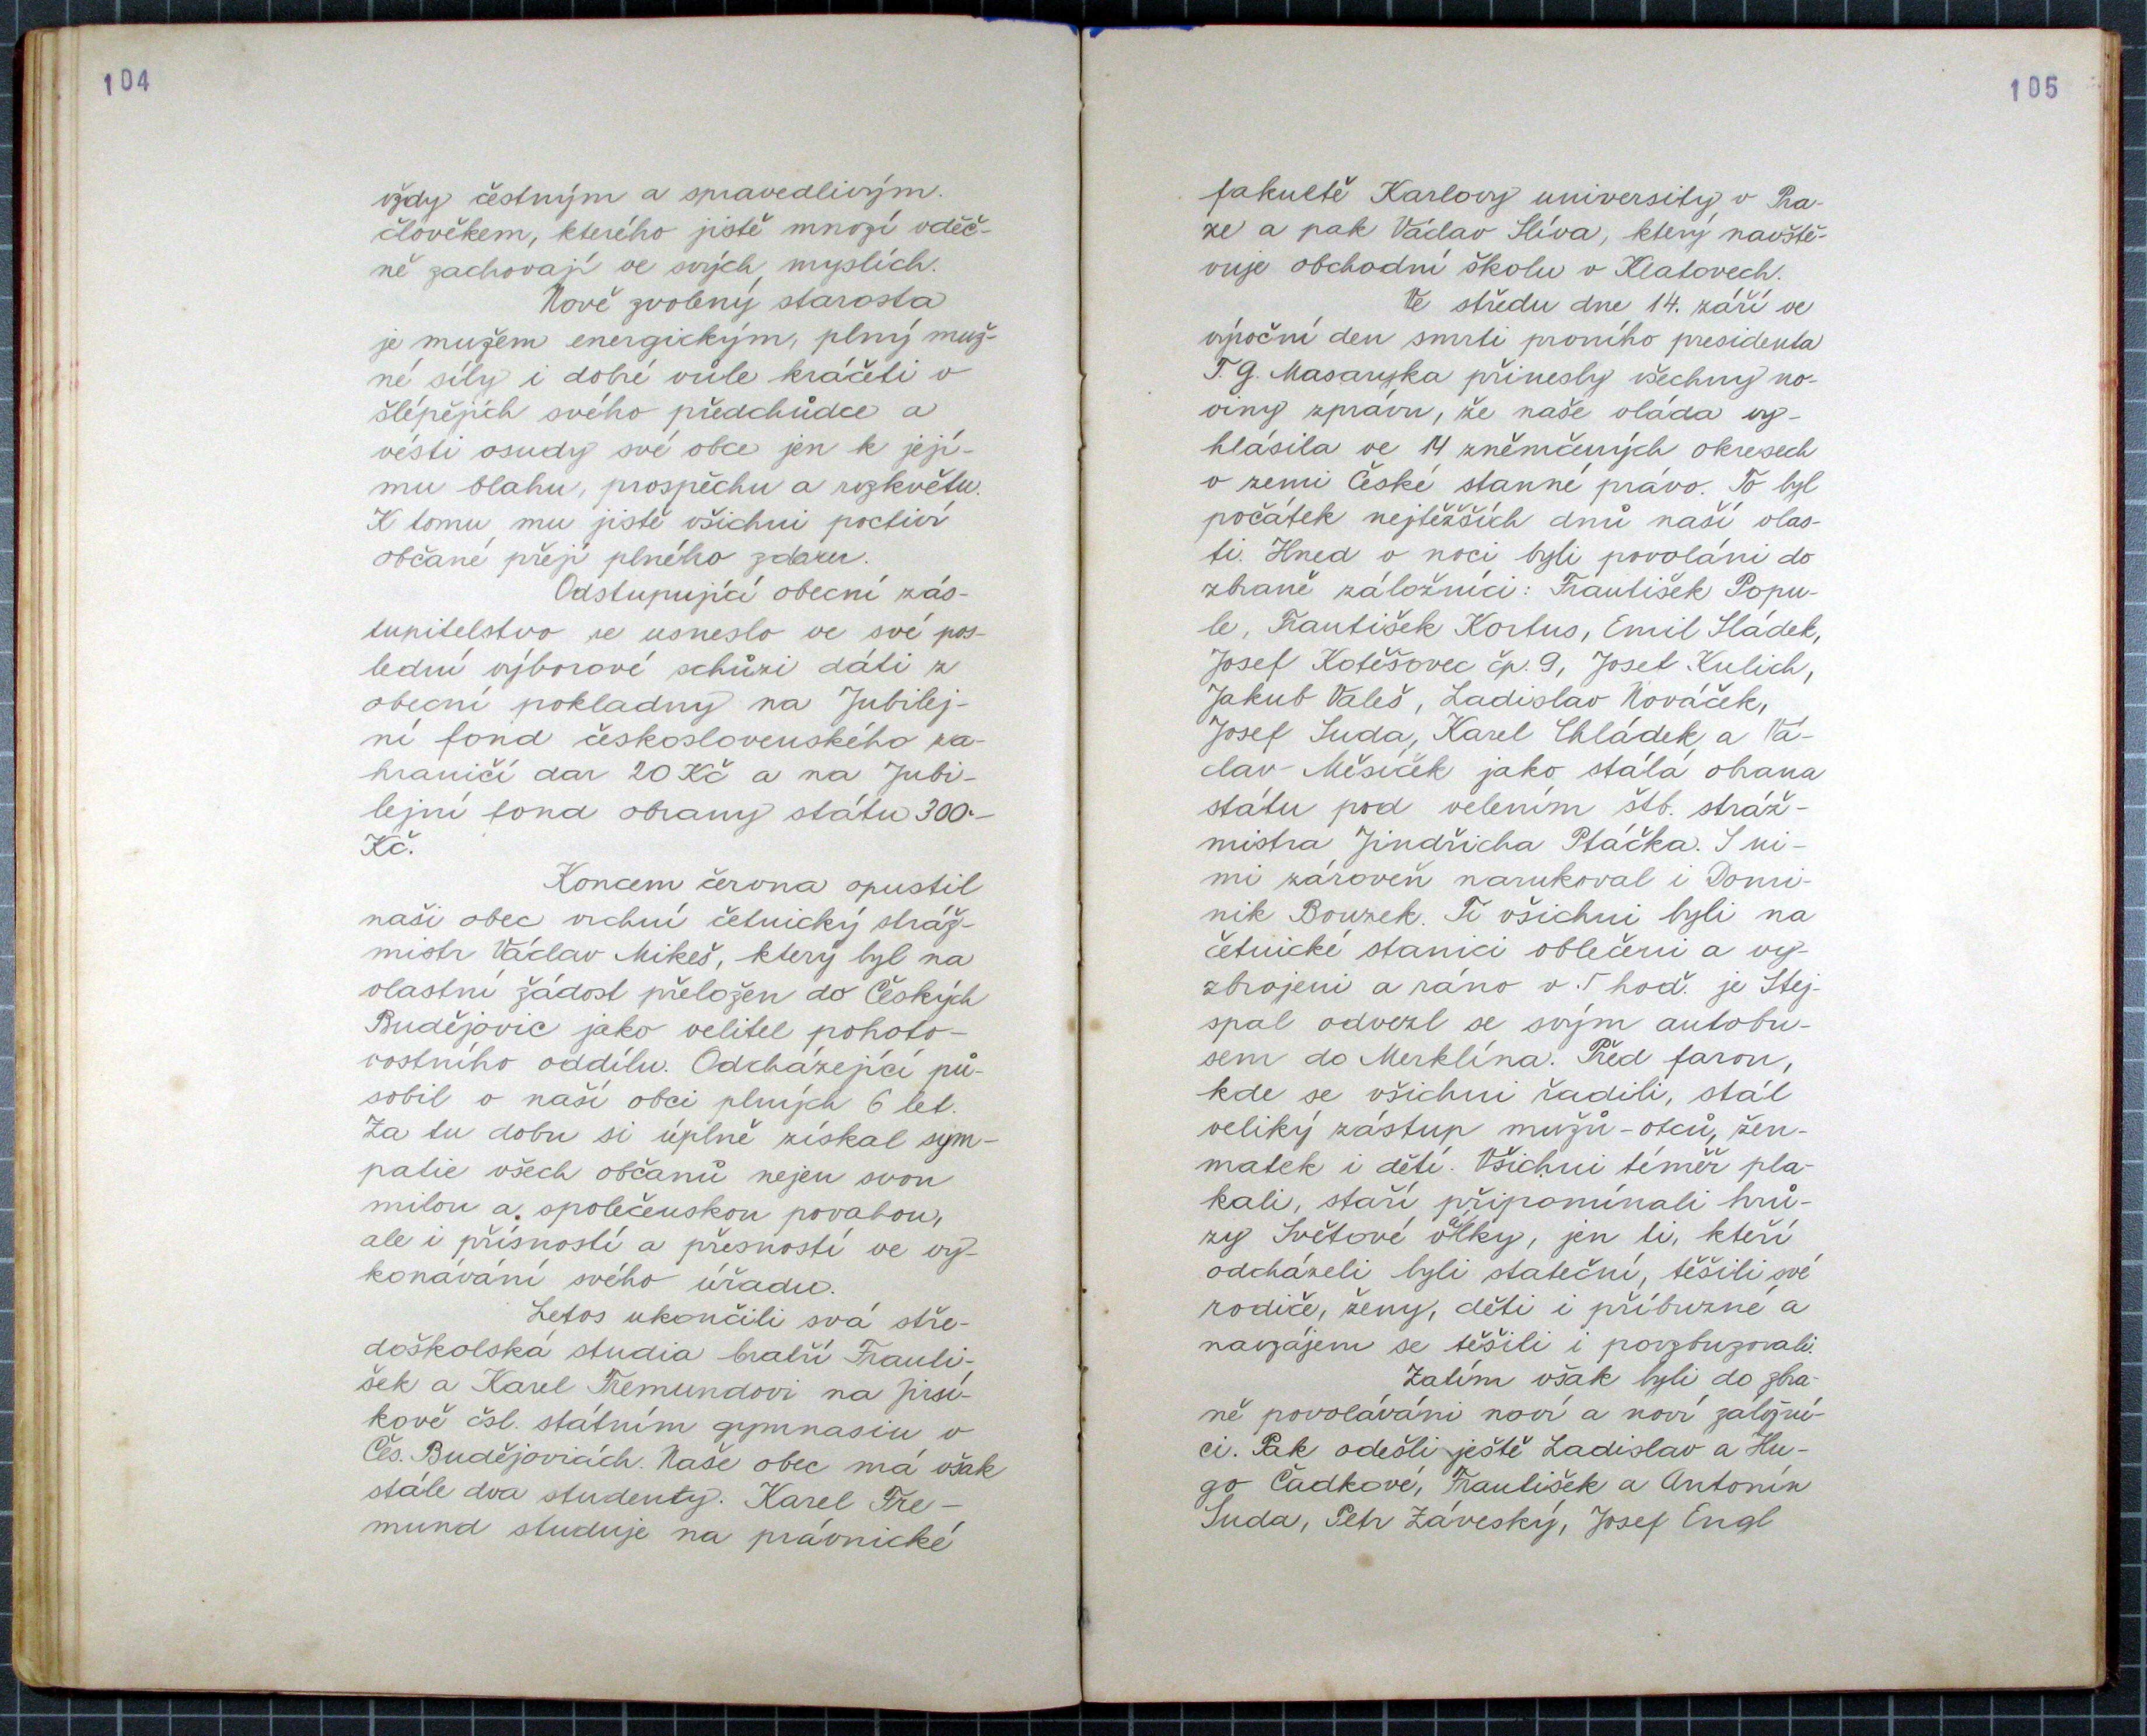 104
vždy čestným a spravedlivým.
člověkem, kterého jistě mnozí vděč-
ně zachovají ve svých myslích.
Nově zvolený starosta
je mužem energickým, plný muž-
né síly i dobré vůle kráčeti v
šlépějích svého předchůdce a
vésti osudy své obce jen k její-
mu blahu, prospěchu a rozkvětu.
K tomu mu jistě všichni poctiví
občané přejí plného zdaru.
Odstupující obecní zás-
tupitelstvo se usneslo ve své pos-
lední výborové schůzi dáti z
obecní pokladny na Jubilej-
ní fond československého za-
hraničí dar 20 Kč a na Jubi-
lejní fond obrany státu 300.-
Kč.
Koncem června opustil
naši obec vrchní četnický stráž-
mistr Václav Mikeš, který byl na
vlastní žádost přeložen do Českých
Budějovic jako velitel pohoto-
vostního oddílu. Odcházející pů-
sobil v naší obci plných 6 let.
Za tu dobu si úplně získal sym-
patie všech občanů nejen svou
milou a společenskou povahou,
ale i přísností a přesností ve vy-
konávání svého úřadu.
Letos ukončili svá stře-
doškolská studia bratří Franti-
šek a Karel Tremundovi na Jirsí-
kově čsl. státním gymnasiu v
Čes. Budějovicích. Naše obec má však
stále dva studenty. Karel Tre-
mund studuje na právnické
105
fakultě Karlovy university v Pra-
ze a pak Václav Slíva, který navště-
vuje obchodní školu v Klatovech.
Ve středu dne 14. září ve
výroční den smrti prvního presidenta
T. G. Masaryka přinesly všechny no-
viny zprávu, že naše vláda vy-
hlásila ve 14 zněmčených okresech
v zemi České stanné právo. To byl
počátek nejtěžších dnů naší vlas-
ti. Hned v noci byli povoláni do
zbraně záložníci: František Popu-
le, František Kortus, Emil Sládek,
Josef Kotěšovec čp. 9, Josef Kulich,
Jakub Valeš, Ladislav Nováček,
Josef Suda, Karel Chládek a Vá-
clav Měsíček jako stálá obrana
státu pod velením štb. stráž-
mistra Jindřicha Ptáčka. S ni-
mi zároveň narukoval i Domi-
nik Bouzek. Ti všichni byli na
četnické stanici oblečeni a vy-
zbrojeni a ráno v 5 hod. je Stej-
spal odvezl se svým autobu-
sem do Merklína. Před farou,
kde se všichni řadili, stál
veliký zástup mužů-otců, žen-
matek i dětí. Všichni téměř pla-
kali, staří připomínali hrů-
zy Světové války, jen ti, kteří
odcházeli byli stateční, těšili své
rodiče, ženy, děti i příbuzné a
navzájem se těšili i povzbuzovali.
Zatím však byli do zbra-
ně povoláváni noví a noví záložní-
ci. Pak odešli ještě Ladislav a Hu-
go Čadkové, František a Antonín
Suda, Petr Záveský, Josef Engl